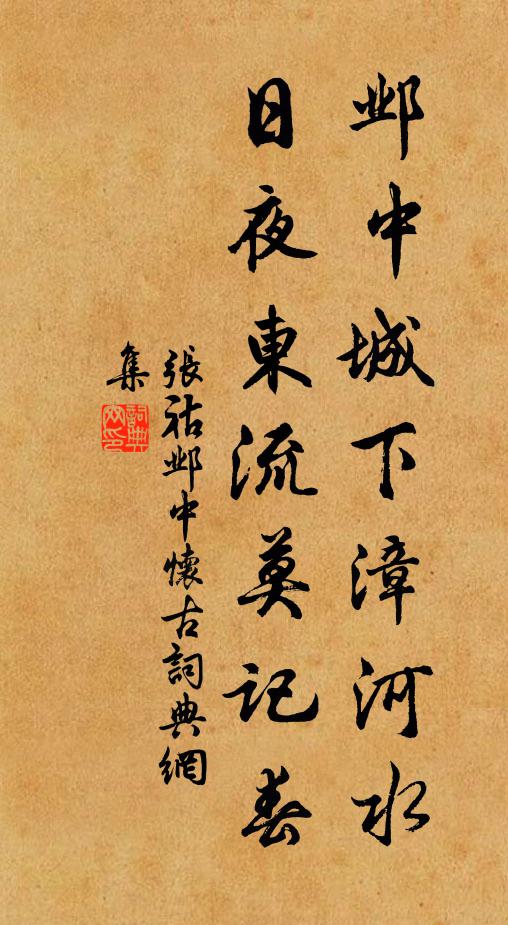 邺中城下漳河水
日夜東流莫记春
張祜邺中懷古詞典網
集
詞典网印